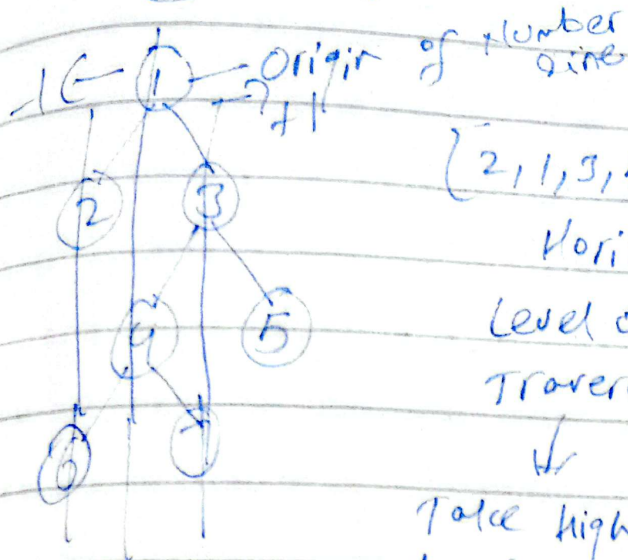 Origin of Number
Line
-1 ← 1
→ +1
[2, 1, 3,
2 3
Hori
4 5
Level o
Traver
6 7
↓
Take High